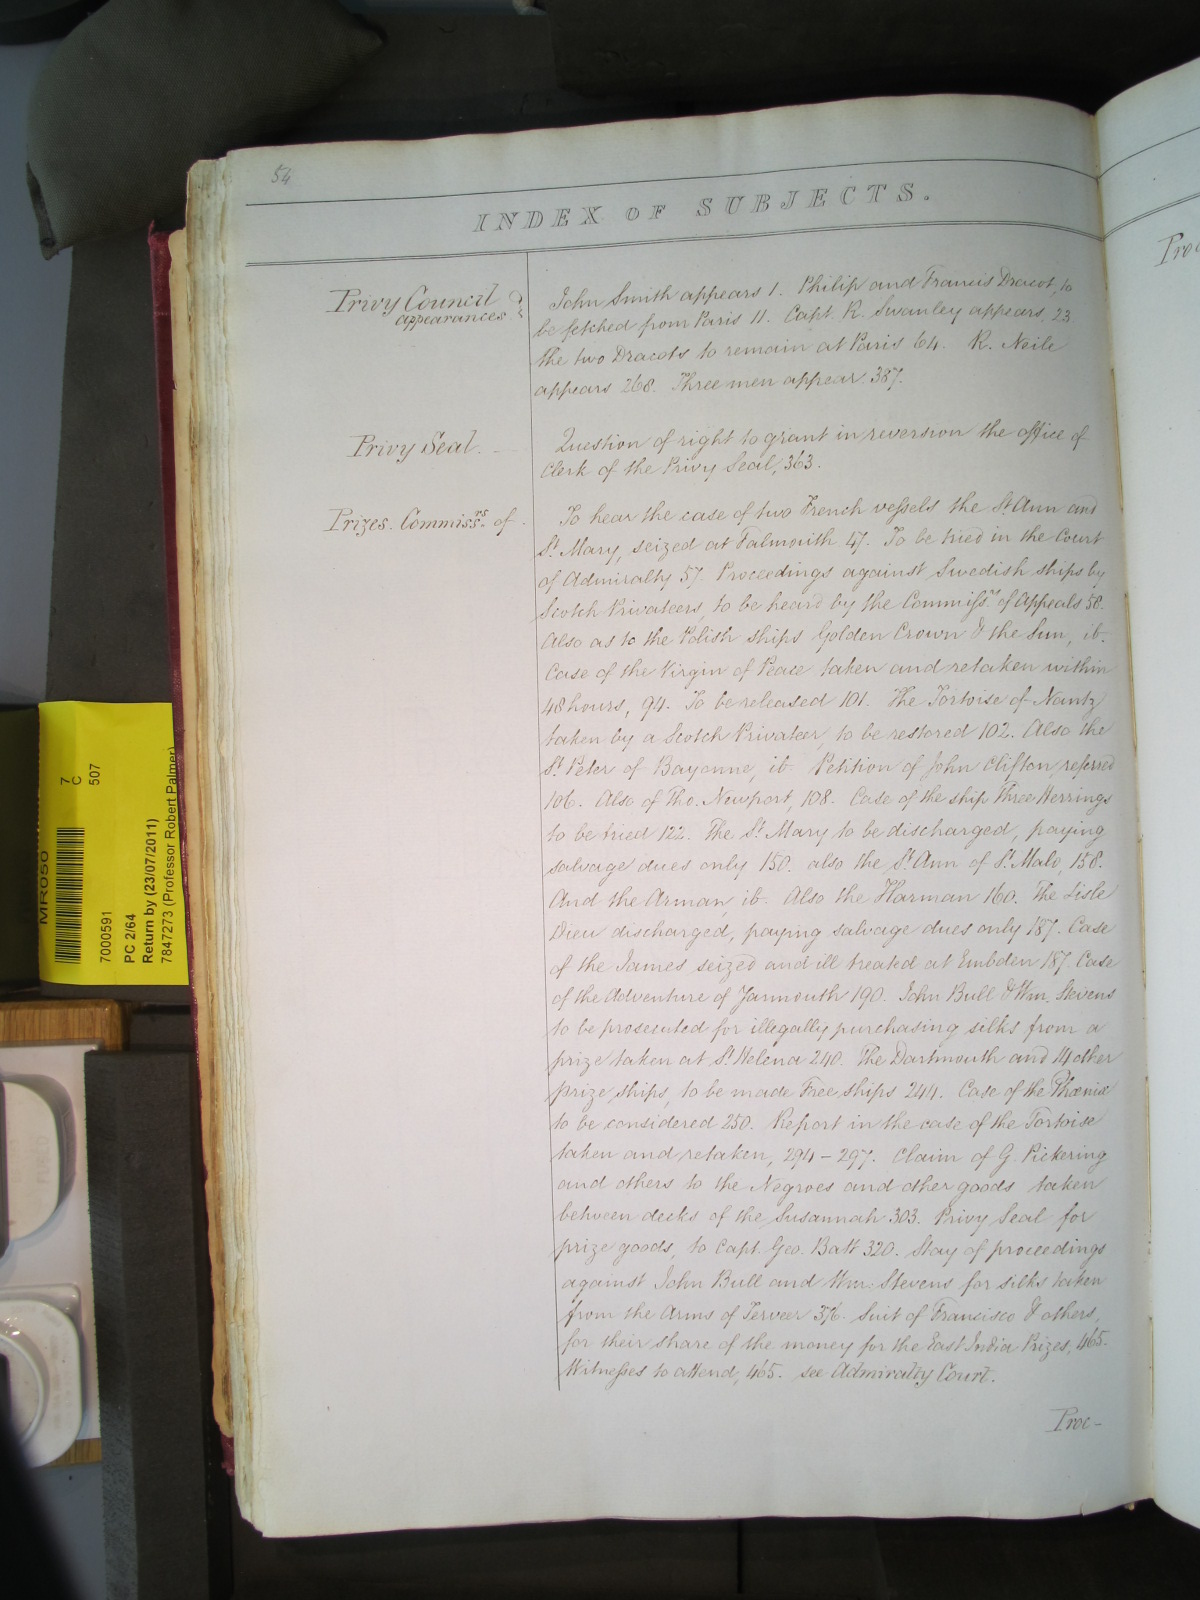 54
INDEX OF SUBJECTS.
Privy Council
appearances
John Smith appears 1. Philip and Francis Dracot, to
be fetched from Paris 11. Capt. R. Swanley appears, 23
the two Dracots to remain at Paris 64. R. Neile
appears 268. Three men appear 387.
Privy Seal.
Question of right to grant in reversion the office of
Clerk of the Privy Seal, 363.
Prizes. Commissrs. of.
To hear the case of two French vessels the St. Ann and
St. Mary, seized at Falmouth 47. To be tried in the Court
of Admiralty 57. Proceedings against Swedish ships by
Scotch Privateers, to be heard by the Commissrs. of Appeals 58.
Also as to the Polish ships Golden Crown & the Sun, ib.
Case of the Virgin of Peace taken and retaken within
48 hours, 94. To be released 101. The Tortoise of Nantz
taken by a Scotch Privateer, to be restored 102. Also the
St. Peter of Bayonne, ib. Petition of John Clifton referred
106. Also of Tho. Newport, 108. Case of the ship Three Herrings
to be tried 122. The St. Mary to be discharged, paying
salvage dues only 150. also the St. Ann of St. Malo, 158.
And the Arman, ib. Also the Harman 160. The Lisle
Dieu discharged, paying salvage dues only 187. Case
of the James seized and ill treated at Embden 187. Case
of the Adventure of Yarmouth 190. John Bull & Wm. Stevens
to be prosecuted for illegally purchasing silks from a
prize taken at St. Helena 240. The Dartmouth and 14 other
prize ships, to be made Free ships 244. Case of the Phœnix
to be considered 250. Report in the case of the Tortoise
taken and retaken, 294 – 297. Claim of G. Pickering
and others to the Negroes and other goods taken
between decks of the Susannah 303. Privy Seal for
prize goods, to Capt. Geo. Batt 320. Stay of proceedings
against John Bull and Wm. Stevens for silks taken
from the Arms of Terveer 376. Suit of Francisco & others,
for their share of the money for the East India Prizes, 465.
Witnesses to attend, 465. see Admiralty Court.
Proc-
7
C
507
MR050
7000591
PC 2/64
Return by (23/07/2011)
7847273 (Professor Robert Palmer)